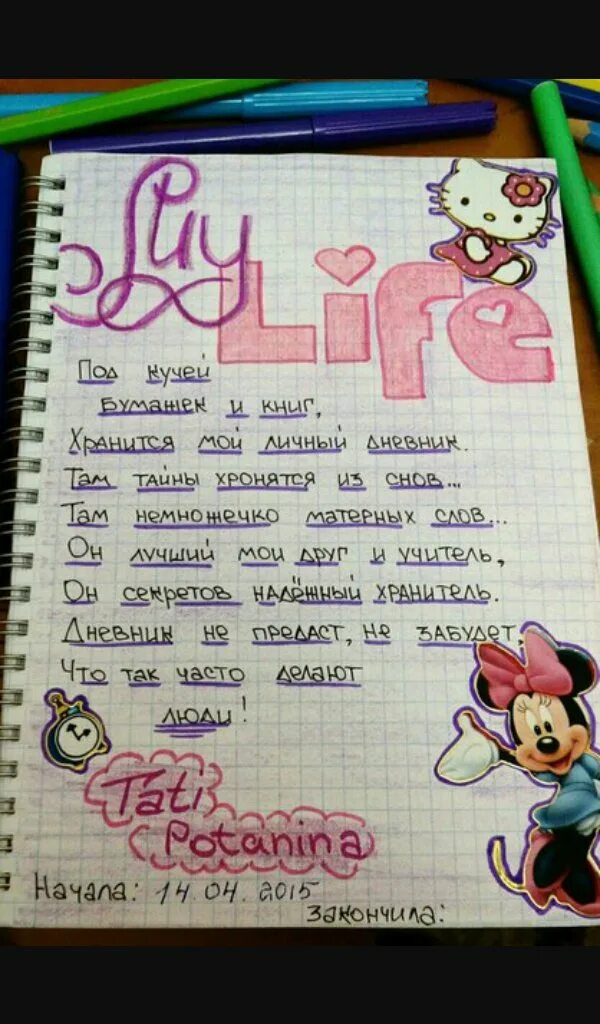 My
Life
Под кучей
Бумажек и книг,
Хранится мой личный дневник.
Там тайны хронятся из снов...
Там немножечко матерных слов...
Он лучший мои друг и учитель,
Он секретов надёжный хранитель.
Дневник не предаст, не забудет,
Что так часто делают
люди!
Tati
Potanina
Начала: 14.04.2015
Закончила: